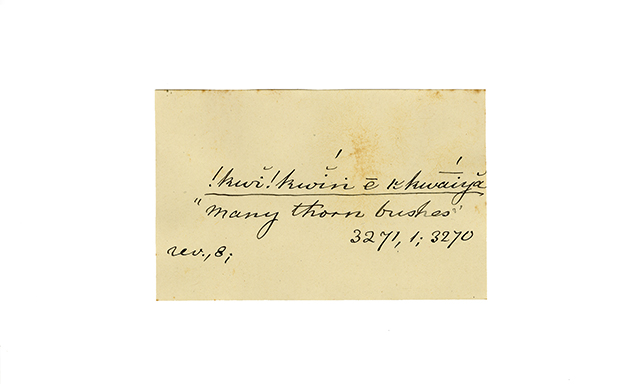 !kwĭ!kwĭń ē k kwāíyă
"many thorn bushes"
3271, 1; 3270
rev., 8;